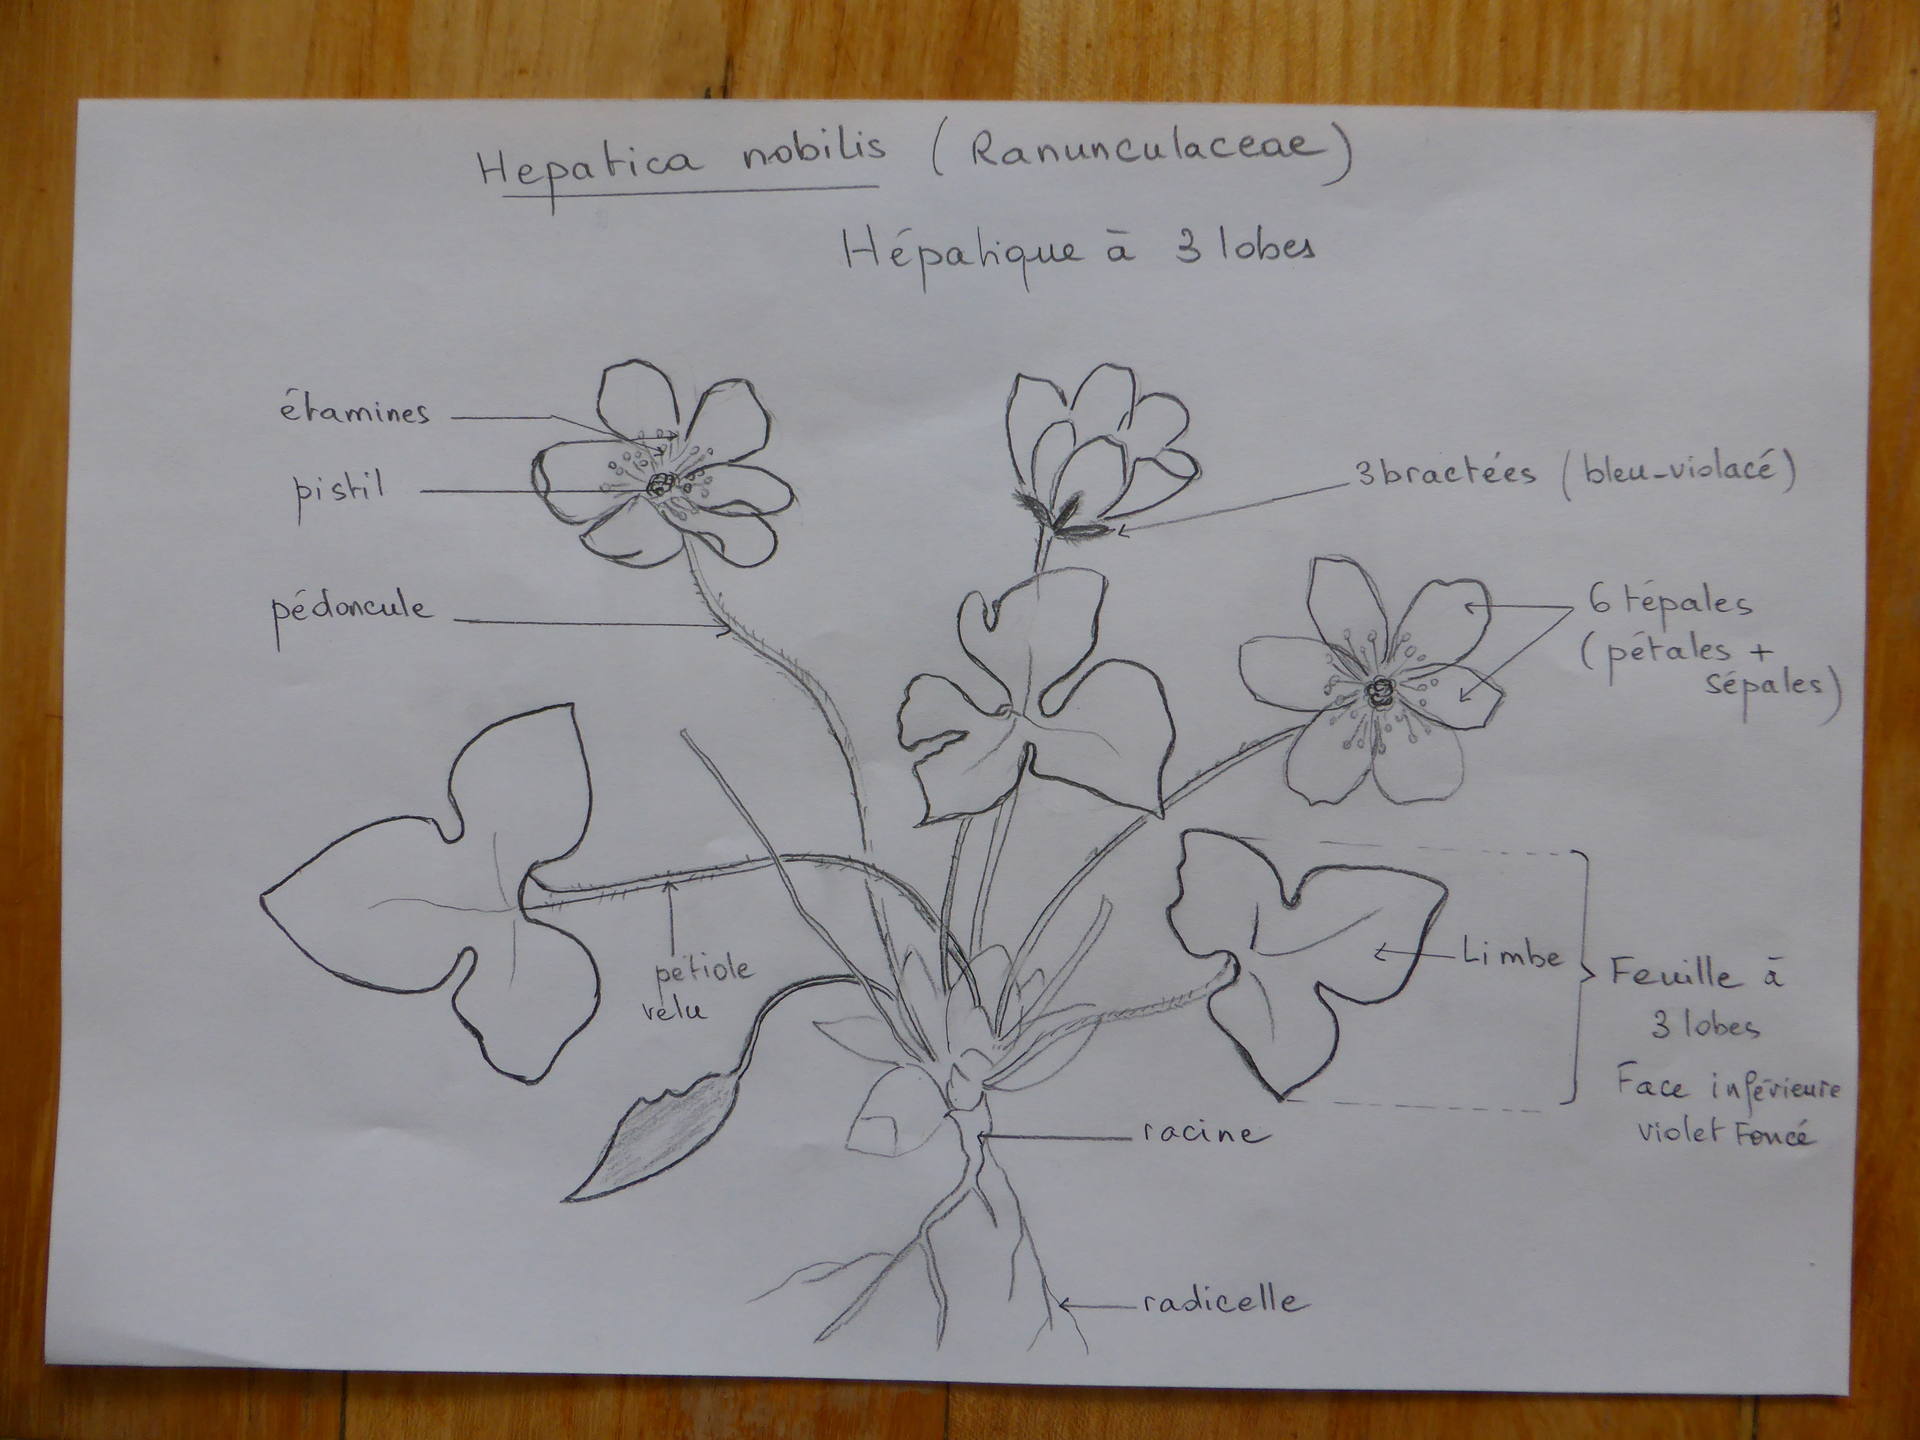 Hepatica nobilis (Ranunculaceae)
Hépatique à 3 lobes
étamines
pistil
pédoncule
3 bractées (bleu-violacé)
6 tépales
(pétales +
sépales)
pétiole
velu
Limbe
Feuille à
3 lobes
Face inférieure
violet Foncé
racine
radicelle